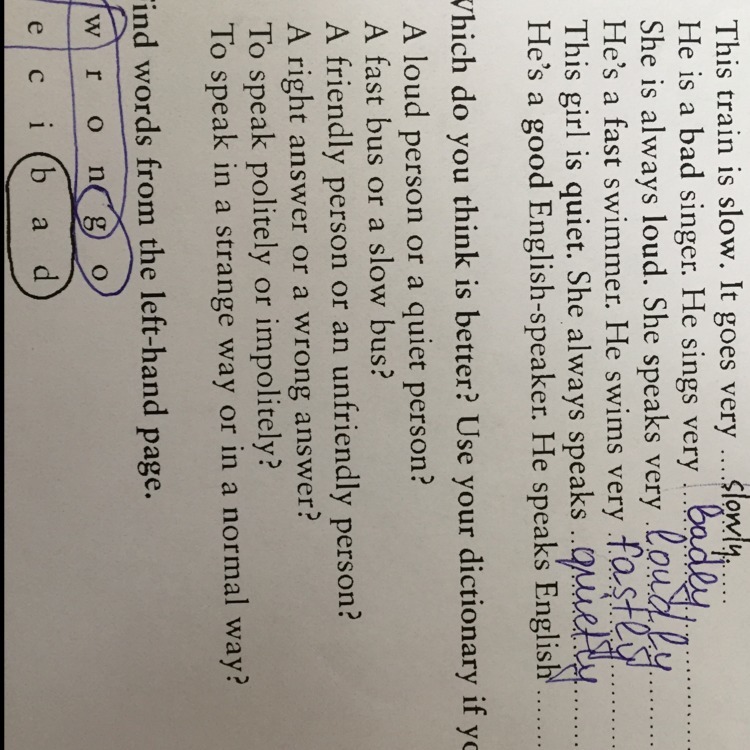 This train is slow. It goes very ....slowly.....
He is a bad singer. He sings very ..badly........
She is always loud. She speaks very ..loudly........
He's a fast swimmer. He swims very ..fastly........
This girl is quiet. She always speaks ...quietly........
He's a good English-speaker. He speaks English ..........
Which do you think is better? Use your dictionary if yo
A loud person or a quiet person?
A fast bus or a slow bus?
A friendly person or an unfriendly person?
A right answer or a wrong answer?
To speak politely or impolitely?
To speak in a strange way or in a normal way?
ind words from the left-hand page.
w r o n g o
e c i b a d